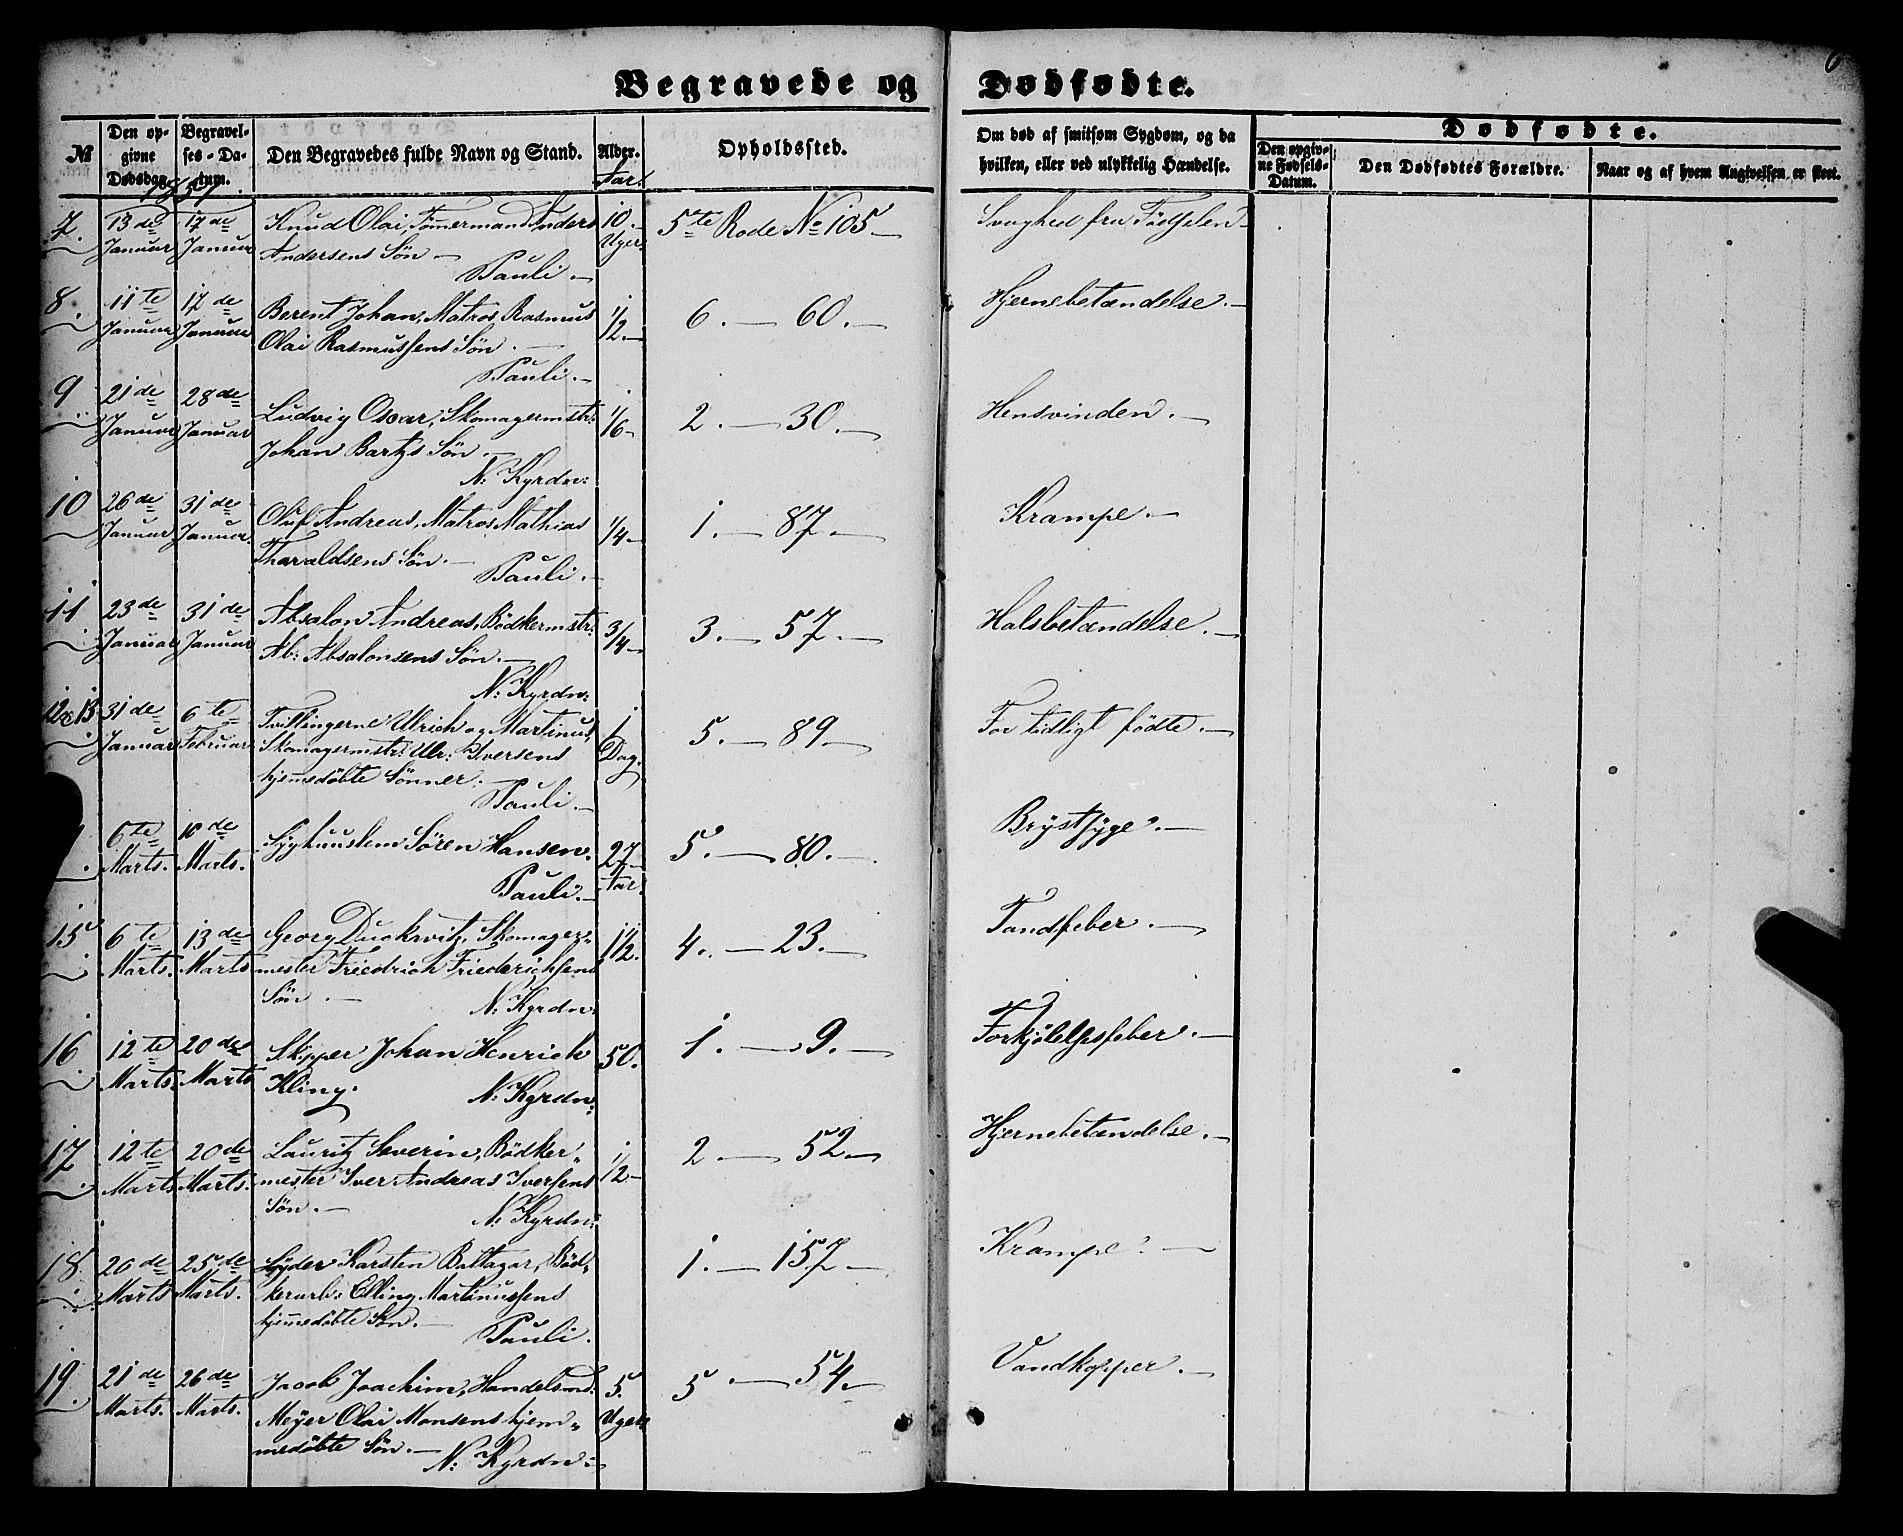 6
Begravede og Dødfødte.
№
Den opgivne Dødsdag.
Begravelses-Datum.
Den Begravedes fulde Navn og Stand.
Alder.
Opholdssted.
Om død af smitsom Sygdom, og da hvilken, eller ved ulykkelig Hændelse.
Dødfødte.
Den opgivne Fødsels-Datum.
Den Dødfødtes Forældre.
Naar og af hvem Angivelsen er skeet.
Aar.
7. 13de Januar 17de Januar
Knud Olai, Tømmermand Anders
Andersens Søn.—
Pauli.—
10. Uger.
5te Rode No 105—
Svaghed fra Fødselen—
8. 11te Januar 17de Januar
Berent Johan, Matros Rasmus
Olai Rasmussens Søn.—
Pauli.—
1/2.—
6.— 60.—
Hjernebetændelse.—
9 21de Januar 28de Januar
Ludvig Oscar, Skomagermstr:
Johan Bartzs Søn.—
N: Kyrdn:
1/6—
2.— 30.—
Hensvinden.—
10 26de Januar 31de Januar.
Oluf Andreas, Matros Mathias
Tharaldsens Søn.—
Pauli.—
1/4—
1.— 87.—
Krampe.—
11 23de Januar 31de Januar
Absalon Andreas, Bødkermstr:
Ab: Absalonsens Søn.—
N: Kyrdn:
3/4—
3.— 57.—
Halsbetændelse.—
12 & 13 31de Januar 6te Februar
Tvillingerne Ulrich og Martinus,
Skomagermstr: Ulr: Iversens
hjemmedøbte Sønner.
Pauli.—
1 Dag.
5.— 89.—
For tidligt fødte.—
6te Marts. 10de Marts.
Søren Hansen.
Pauli.—
27— Aar.
5.— 80.—
Brystsyge.—
15 6te Marts. 13de Marts
Georg Duckwitz, Skomager-
mester Friedrich Friederichsens
Søn.—
N: Kyrdn:
1 1/2.
4.— 23.—
Tandfeber.—
16 12te Marts. 20de Marts
Skipper Johan Henrich
Kling.
N: Kyrdn:
50.
1.— 9.—
Forkjølelsesfeber.—
17 12te Marts 20de Marts.
Lauritz Severin, Bødker-
mester Iver Andreas Iversens
Søn.—
N: Kyrdn:
1/2—
2— 52.—
Hjernebetændelse.—
18. 20de Marts 25de Marts.
Lyder Karsten Baltazar, Bød-
kerarb: Elling Martinussens
hjemmedøbte Søn.—
Pauli.
1.— 157.—
Krampe.—
19. 21de Marts. 26de Marts.
Jacob Joachim, Handelsmd:
Meyer Olai Monsens hjem-
medøbte Søn.—
N: Kyrdn:—
5. Uger.
5.— 54.—
Vandkopper.—